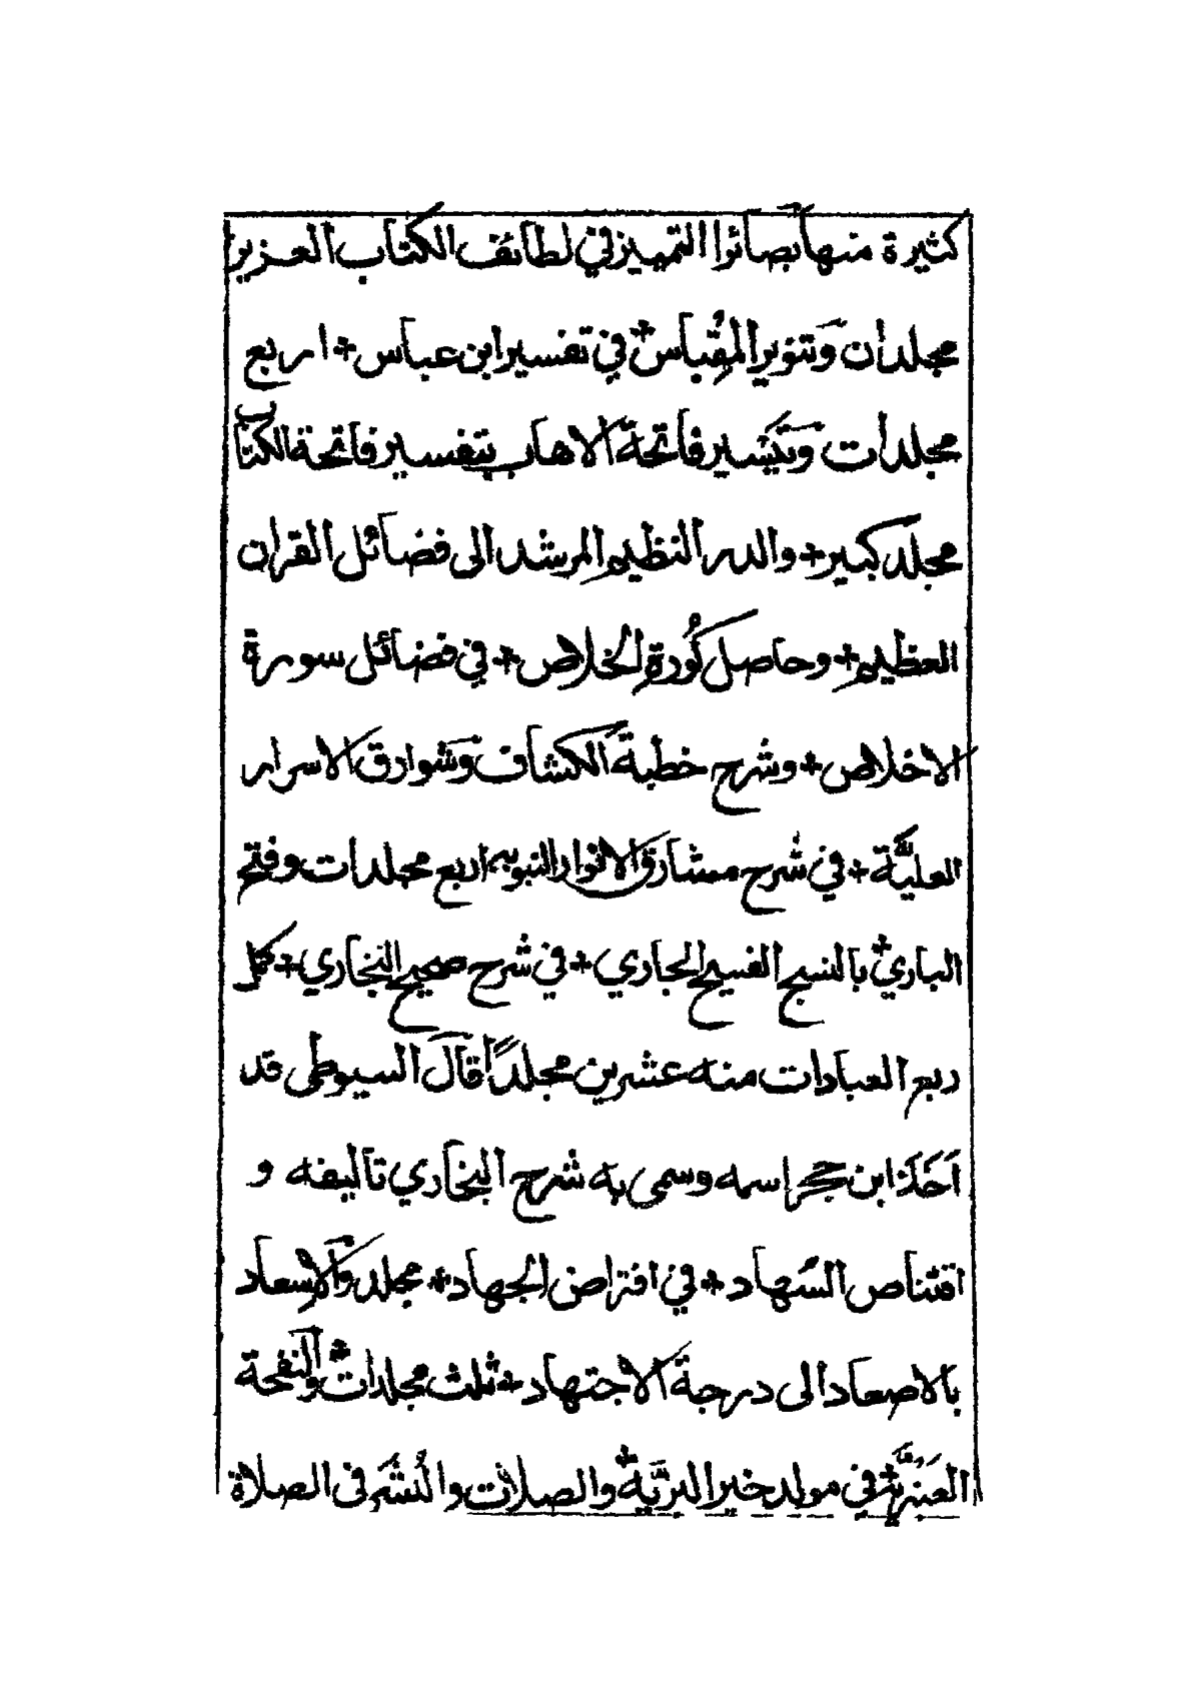 كثيرة منها بصائر التمييز في لطائف الكتاب العزيز
مجلدان وتنوير المقباس في تفسير ابن عباس اربع
مجلدات وتيسير فاتحة الاهاب بتفسير فاتحة الكتاب
مجلد كبير والدر النظيم المرشد الى فضائل القران
العظيم وحاصل كُورة الخلاص في فضائل سورة
الاخلاص وشرح خطبة الكشاف وشوارق الاسرار
العليَّة في شرح مشارق الانوار النبويه اربع مجلدات وفتح
الباري بالنسيج الفسيح الجاري في شرح صحيح البخاري كمل
ربع العبادات منه عشرين مجلدًا قال السيوطى قد
اَخَذَ ابن حجر اسمه وسمى به شرح البخاري تاليفه و
اقتناص السُهاد في افتراض الجهاد مجلد والاِسعاد
بالاصعاد الى درجة الاجتهاد ثلث مجلدات والنفحة
العَنبريَّة في مولد خير البريَّة والصلات والُبشَر فى الصلاة